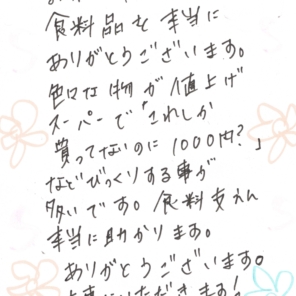 食料品を本当に
ありがとうございます。
色々な物が値上げ
スーパーで「これしか
買ってないのに1000円?」
などびっくりする事が
多いです。食料支えん
本当に助かります。
ありがとうございます。
いただきます!